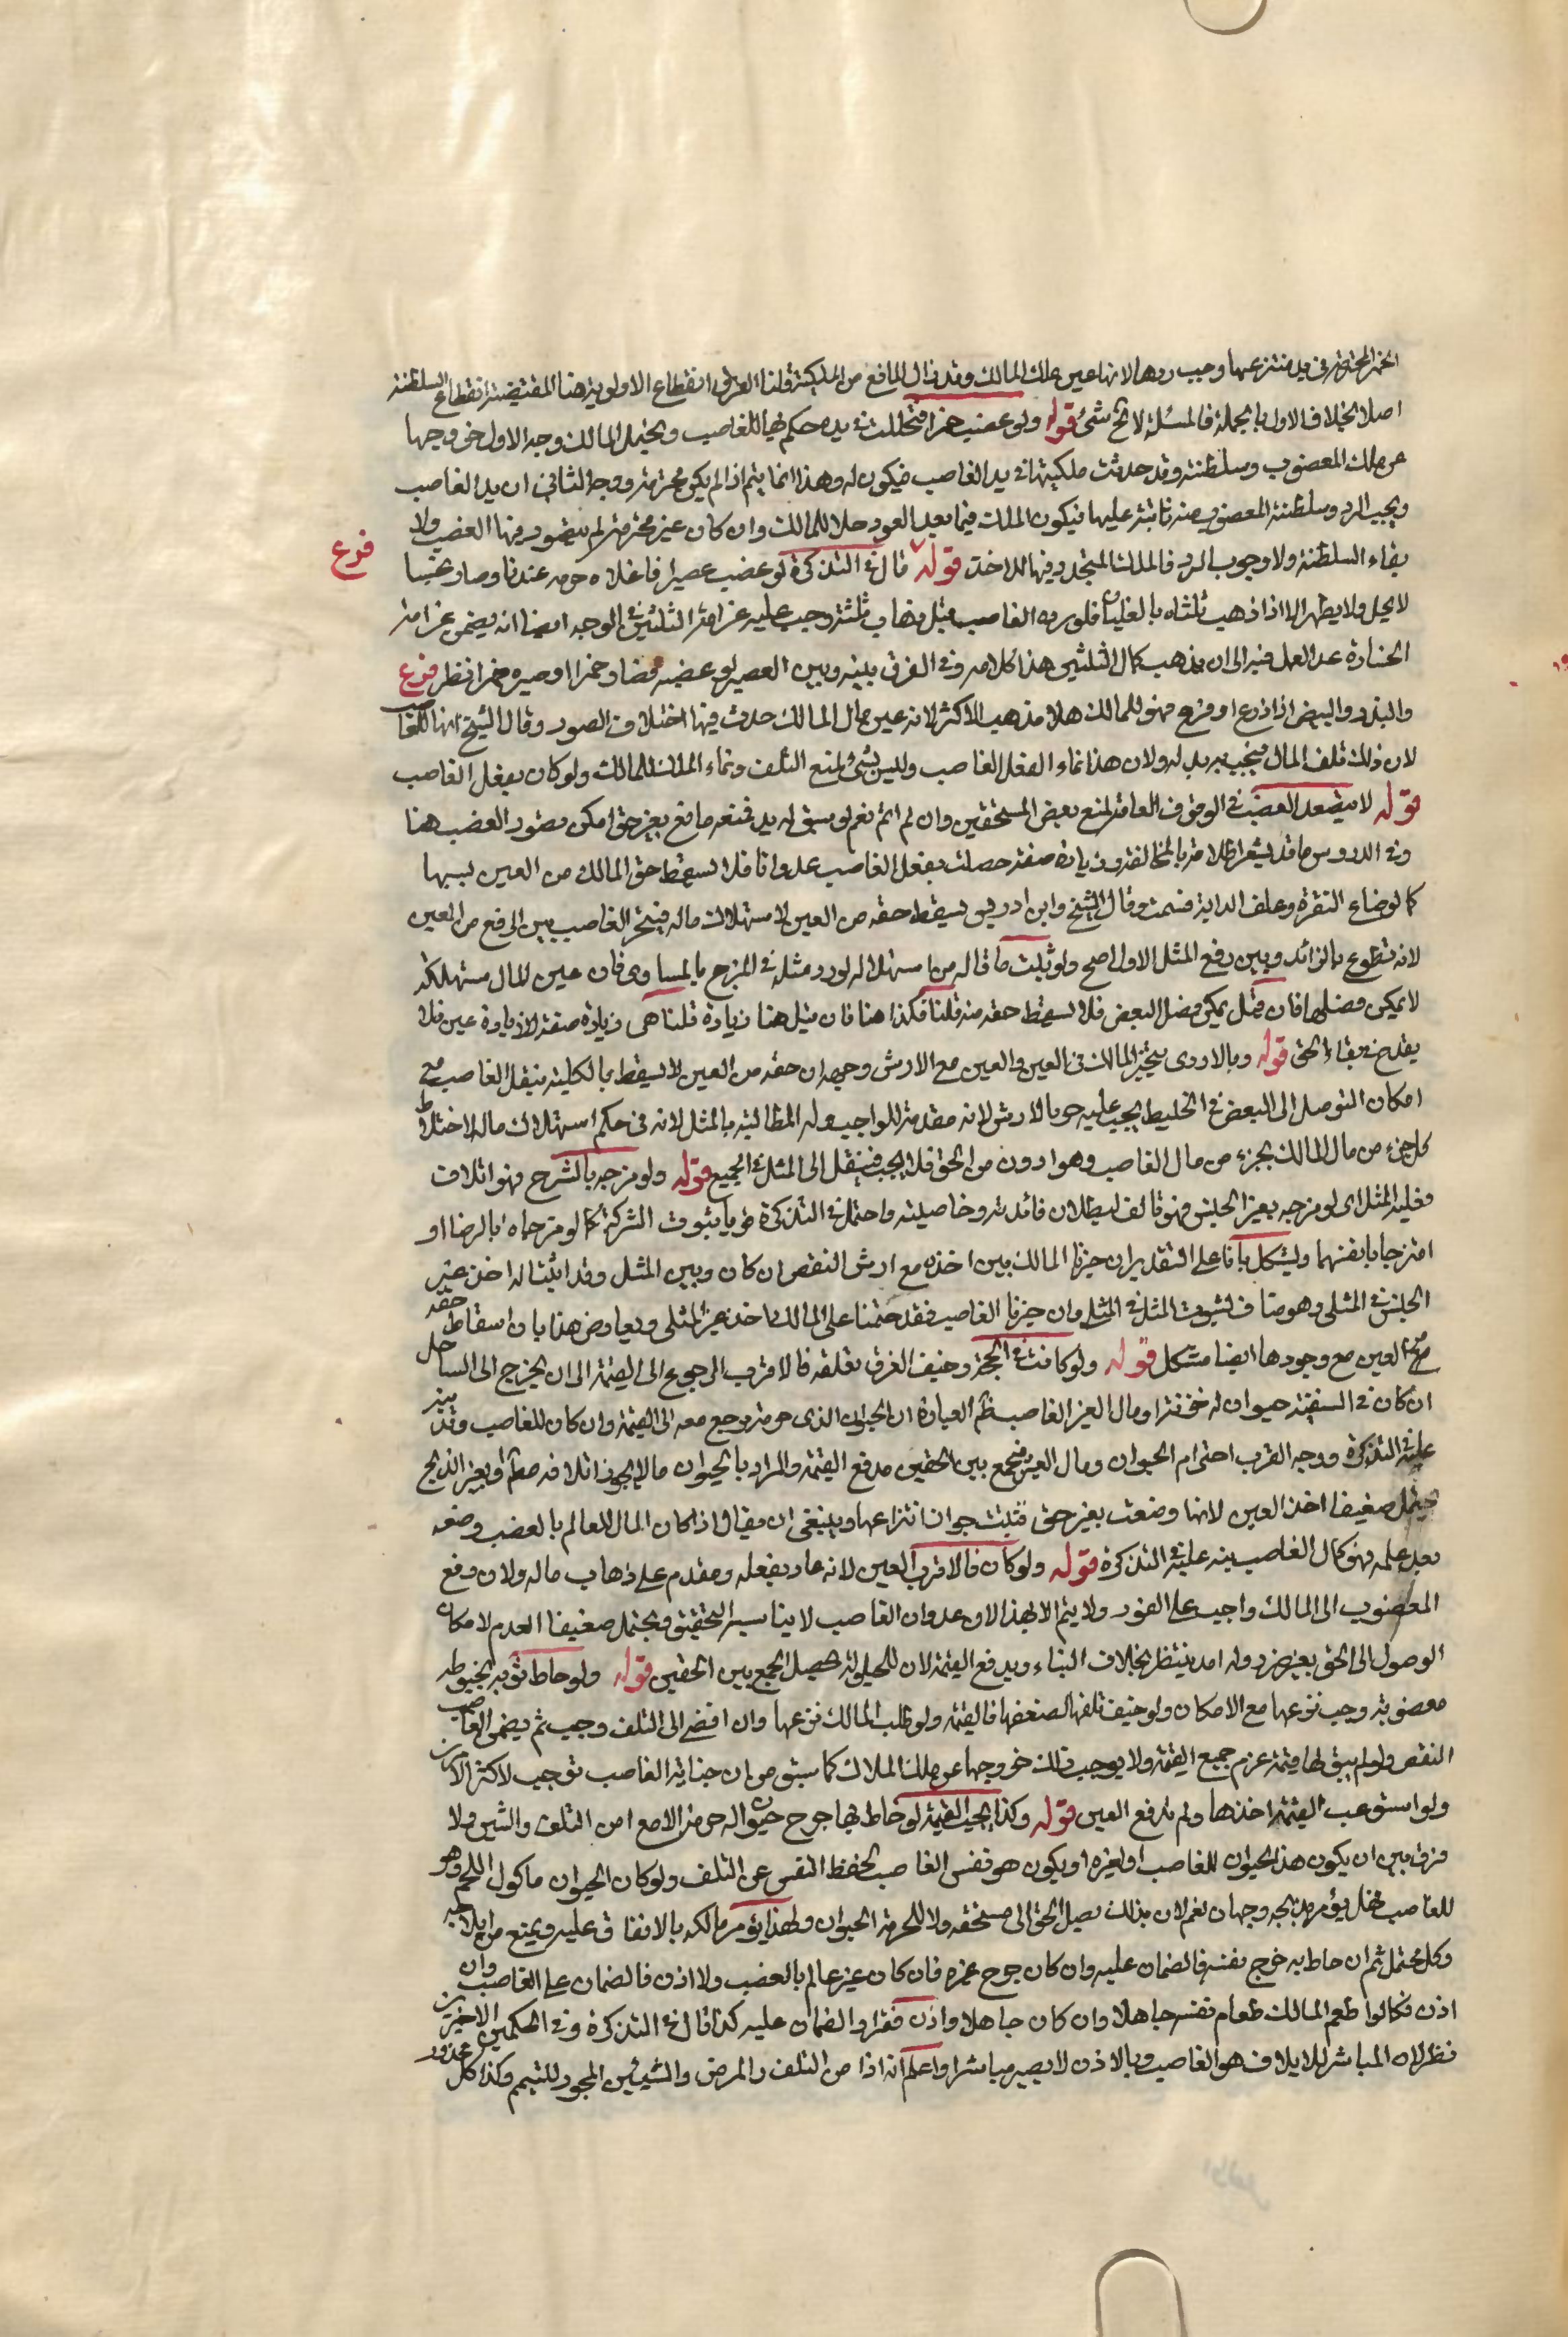 الخمر المحترمة في يد منتزعها وجب ردها لانها عين ملك المالك وقد زال المانع من الملكية قلنا الفرق انقطاع الاولوية هنا المقتضية انقطاع السلطنة
اصلا بخلاف الاول بالجملة فالمسئلة لا تخ شئ قوله ولو غصب خمرا فتخللت في يده حكم بها للغاصب ويحتمل المالك وجه الاول خروجها
عن ملك المغصوب وسلطنته وقد حدثت ملكيتها في يد الغاصب فيكون له وهذا انما يتم اذا لم يكن محترمة ووجه الثاني ان يد الغاصب
ويجب الرد وسلطنة المغصوب منه ثابتة عليها فيكون الملك فيما بعد العود خلا للمالك وان كان غير محترمة لم يتصور فيها الغصب ولا
بقاء السلطنة ولا وجوب الرد فالملك المتجدد فيها للاخذ قوله قال في التذكرة لو غصب عصيرا فاغلاه حرم عندنا وصار نجسا
فرع
لا يحل ولا يطهر الا اذا ذهب ثلثاه بالغليان فلو رده الغاصب قبل ذهاب ثلثيه وجب عليه غرامة الثلثين والوجه ايضا انه يضمن غرامة
الخسارة على العمل فيه الى ان يذهب كمال الثلثين هذا كلامه وفي الفرق بينه وبين العصير لو غصبه فصار خمرا او صيره خمرا نظر فرع
والبذر والبيض اذا زرع او فرخ فهو للمالك هذا مذهب الاكثر لانه عين مال المالك حدث فيها اختلاف الصور وقال الشيخ انها للغاصب
لان ذلك تلف المال فيجب رد بدله ولان هذا نماء الفعل الغاصب وليس بشئ لمنع التلف ونماء الملك للمالك ولو كان بفعل الغاصب
قوله لا يتصور الغصب في الوقوف العامة لمنع بعض المستحقين وان لم اثم نعم لو سبق له يد فمنعه مانع بغير حق امكن تصور الغصب هنا
وفي الدروس ما قد يشعر اطلاقه بالمخالفة وزيادة صفة حصلت بفعل الغاصب عدوانا فلا يسقط حق المالك من العين بسببها
كما لو صاغ النقرة وعلف الدابة فسمنت وقال الشيخ وابن ادريس يسقط حقه من العين لاستهلاك ماله فيتخير الغاصب بين الدفع من العين
لانه تطوع بالزائد وبين دفع المثل الاول اصح ولو ثبت ما قاله من استهلاك له لورد مثله في المزج بالمساوي فان عين المال مستهلكة
لا يمكن فصلها فان قيل يمكن فصل البعض فلا يسقط حقه منه قلنا فكذا هنا فان قيل هنا زيادة قلنا هي زيادة صفة لا زيادة عين فلا
يقدح في بقاء الحق قوله وبالاردى يتخير المالك في العين والعين مع الارش وجه ان حقه من العين لا يسقط بالكلية بفعل الغاصب مع
امكان التوصل الى البعض في الخليط يجب عليه جوبا لارش لانه مقدمة للواجب وله المطالبة بالمثل لانه في حكم استهلاك ماله لاختلاط
كل جزء من مال المالك بجزء من مال الغاصب وهو ادون من الحق فلا يجب فينتقل الى المثل في الجميع قوله ولو مزجه بالشرح فهو اتلاف
فعليه المثل اي لو مزجه بغير الجنس فهو تالف لبطلان فائدته وخاصيته واحتمل في التذكرة قويا ثبوت الشركة كما لو مزجاه بالرضا او
امتزجا بانفسهما ويشكل بانا على التقدير ان خيرنا المالك بين اخذه مع ارش النقص ان كان وبين المثل وقد اثبتنا له اخذ غير
الجنس في المثلي وهو مناف لثبوت المثل في المثلي وان خيرنا الغاصب فقد حتمنا على المالك ما خذ غير المثلي ويعارض هذا بان اسقاط حقه
من العين مع وجودها ايضا مشكل قوله ولو كانت في اللجة وخيف الغرق بقلعه فالاقرب الرجوع الى القيمة الى ان يخرج الى الساحل
ان كان في السفينة حيوان له حرمة او مال لغير الغاصب ظم العبارة ان الحيوان الذي حرمته رجع معه الى القيمة وان كان للغاصب وقد نبه
عليه في التذكرة ووجه القرب احترام الحيوان ومال الغير فيجمع بين الحقين بدفع القيمة والمراد بالحيوان ما لا يجوز اتلافه مطلقا او بغير الذبح
يحتمل ضعيفا اخذ العين لانها وضعت بغير حق فثبت جواز انتزاعها وينبغي ان يقال اذا كان المال للعالم بالغصب وضعه
بعد علمه فهو كمال الغاصب نبه عليه في التذكرة قوله ولو كان فالاقرب العين لانه عاد بفعله ومقدم على ذهاب ماله ولان دفع
المغصوب الى المالك واجب على الفور ولا يتم الا بهذا لان عدوان الغاصب لا يناسب التخفيف ويحتمل ضعيفا العدم لامكان
الوصول الى الحق بغير ضرر وله امد ينتظر بخلاف البناء ويدفع القيمة لان للحيلولة حصيل الجمع بين الحقين قوله ولو خاط ثوبه بخيوط
مغصوبة وجب نزعها مع الامكان ولو خيف تلفها لضعفها فالقيمة ولو طلب المالك نزعها وان افضى الى التلف وجب ثم يضمن الغاصب
النقص ولو لم يبق لها قيمة غرم جميع القيمة ولا يوجب ذلك خروجها عن ملك الملاك كما سبق من ان جناية الغاصب توجب لاكثر الامرين
ولو استوعب القيمة اخذها ولم يدفع العين قوله وكذا يجب القيمة لو خاط بها جرح حيوان له حرمة الا مع امن التلف والشين ولا
فرق بين ان يكون هذا الحيوان للغاصب او لغيره او يكون هو نفس الغاصب لحفظ النفس عن التلف ولو كان الحيوان ماكول اللحم وهو
للغاصب فهل يؤمر بذبحه وجهان نعم لان بذلك يصل الحق الى مستحقه ولا للحرمة الحيوان ولهذا يؤمر مالكه بالانفاق عليه ويمنع من ايلامه
وكل محتمل ثم ان خاط به جرح نفسه فالضمان عليه وان كان جرح غيره فان كان غير عالم بالغصب ولا اذن فالضمان على الغاصب وان
اذن فكما لو اطعم المالك طعام نفسه جاهلا وان كان جاهلا واذن فقرار الضمان عليه كذا قال في التذكرة وفي الحكمين الاخيرين
نظر لان المباشر للاتلاف هو الغاصب وبالاذن لا يصير مباشرا واعلم انه اذا من التلف والمرض والشين المجوز للتيمم وكذا كل عذور